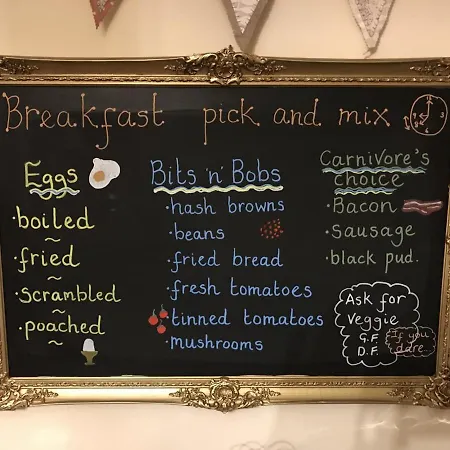 Breakfast pick and mix
Eggs
·boiled
~
·fried
~
·scrambled
~
·poached
~
Bits 'n' Bobs
·hash browns
·beans
·fried bread
·fresh tomatoes
·tinned tomatoes
·mushrooms
Carnivore's
choice
·Bacon
·sausage
·black pud.
Ask for
Veggie
G.F
D.F.
If you
dare